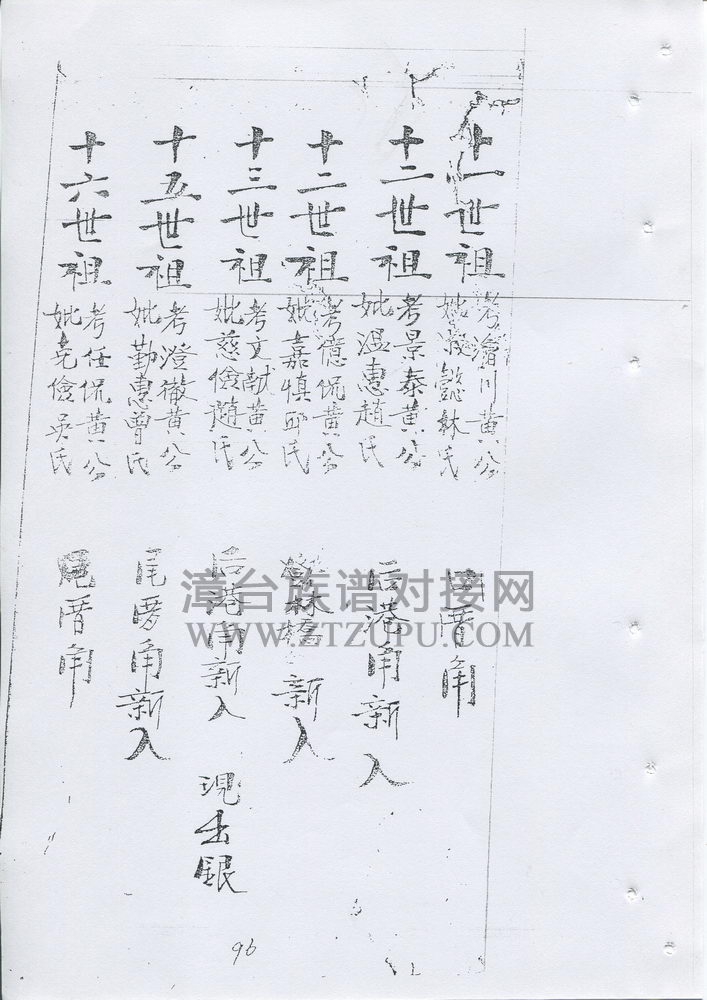 十一世祖
考滄川黄公
妣淑懿林氏
田厝角
十二世祖
考景泰黄公
妣温惠趙氏
后港角新入
十二世祖
考德侃黄公
妣嘉慎邱氏
林橋新入
十三世祖
考文献黄公
妣慈儉趙氏
后港角新入
現出銀
十五世祖
考澄徹黄公
妣勤惠曾氏
尾厝角新入
十六世祖
考任侃黄公
妣克儉吴氏
尾厝角
漳台族谱对接网
WWW.ZTZUPU.COM
96